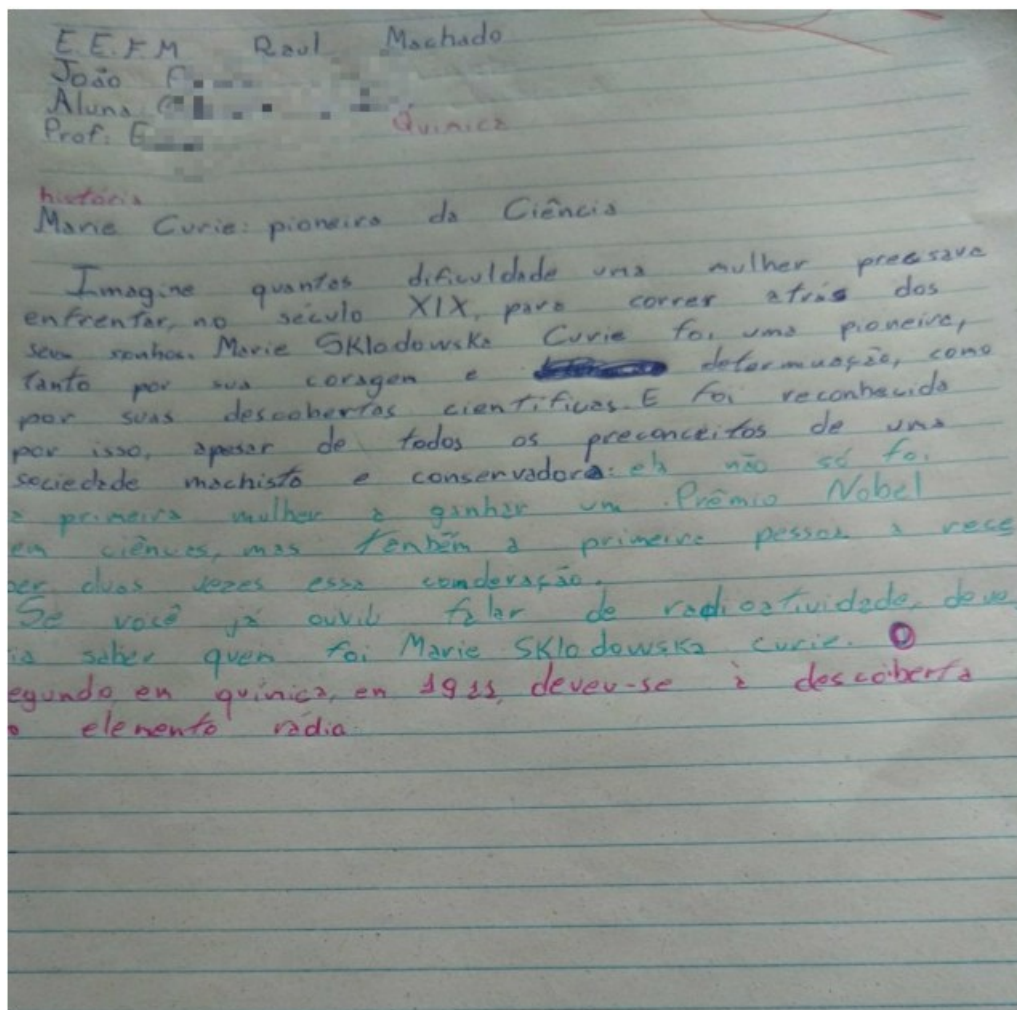 E.E.F.M Raul Machado
João
Aluna
Prof: E
Química
história
Marie Curie: pioneira da Ciência
Imagine quantas dificuldade uma mulher precsava
enfrentar, no século XIX, para correr atrás dos
seus sonhos. Marie Sklodowska Curie foi uma pioneira,
tanto por sua coragen e determunação, como
por suas descobertas científicas. E foi reconhecida
por isso, apesar de todos os preconceitos de uma
sociedade machista e conservadora: ela não só foi
a primeira mulher a ganhar um Prêmio Nobel
em ciências, mas tenbém a primeira pessoa a rece
ber duas vezes essa conderação.
Se você já ouviu falar de radioatividade, deve
ia saber quen foi Marie Sklodowska Curie. O
egundo en química, en 1911, deveu-se à descoberta
o elemento rádia.